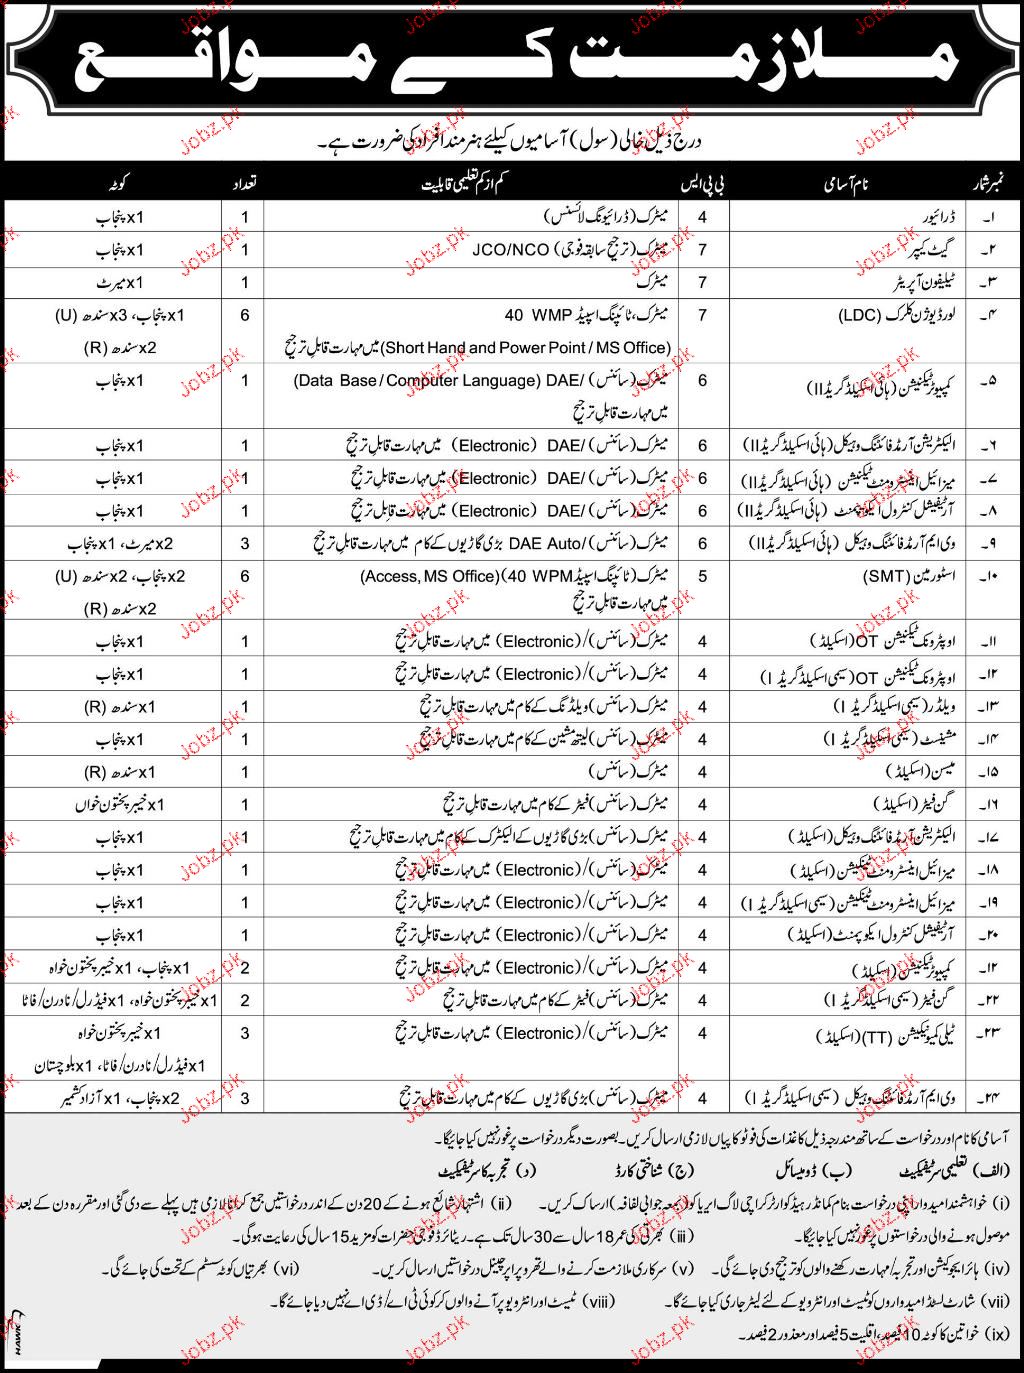 ملازمت کے مواقع
درج ذیل خالی (سول) آسامیوں کیلئے ہنرمند افراد کی ضرورت ہے۔
نمبر شمار نام آسامی بی پی ایس کم از کم تعلیمی قابلیت تعداد کوٹہ
۱۔ ڈرائیور 4 میٹرک (ڈرائیونگ لائسنس) 1 1xپنجاب
۲۔ گیٹ کیپر 7 میٹرک (ترجیح سابقہ فوجی) JCO/NCO 1 1xپنجاب
۳۔ ٹیلیفون آپریٹر 7 میٹرک 1 1xمیرٹ
۴۔ لورڈیوژن کلرک (LDC) 7 میٹرک، ٹائپنگ اسپیڈ 40 WMP 6 1xپنجاب، 3xسندھ (U)
(Short Hand and Power Point / MS Office) میں مہارت قابل ترجیح 2xسندھ (R)
۵۔ کمپیوٹر ٹیکنیشن (ہائی اسکیلڈ گریڈ II) 6 میٹرک (سائنس) /DAE (Data Base / Computer Language) 1 1xپنجاب
میں مہارت قابل ترجیح
۶۔ الیکٹریشن آرمڈ فائٹنگ وہیکل (ہائی اسکیلڈ گریڈ II) 6 میٹرک (سائنس) /DAE (Electronic) میں مہارت قابل ترجیح 1 1xپنجاب
۷۔ میزائیل انسٹرومنٹ ٹیکنیشن (ہائی اسکیلڈ گریڈ II) 6 میٹرک (سائنس) /DAE (Electronic) میں مہارت قابل ترجیح 1 1xپنجاب
۸۔ آرٹیفیشل کنٹرول ایکوپمنٹ (ہائی اسکیلڈ گریڈ II) 6 میٹرک (سائنس) /DAE (Electronic) میں مہارت قابل ترجیح 1 1xپنجاب
۹۔ وی ایم آرمڈ فائٹنگ وہیکل (ہائی اسکیلڈ گریڈ II) 6 میٹرک (سائنس) /DAE Auto بڑی گاڑیوں کے کام میں مہارت قابل ترجیح 3 2xمیرٹ، 1xپنجاب
۱۰۔ اسٹور مین (SMT) 5 میٹرک (ٹائپنگ اسپیڈ 40 WPM) (Access, MS Office) 6 2xپنجاب، 2xسندھ (U)
میں مہارت قابل ترجیح 2xسندھ (R)
۱۱۔ اوپٹرونک ٹیکنیشن OT (اسکیلڈ) 4 میٹرک (سائنس) /(Electronic) میں مہارت قابل ترجیح 1 1xپنجاب
۱۲۔ اوپٹرونک ٹیکنیشن OT (سیمی اسکیلڈ گریڈ I) 4 میٹرک (سائنس) /(Electronic) میں مہارت قابل ترجیح 1 1xپنجاب
۱۳۔ ویلڈر (سیمی اسکیلڈ گریڈ I) 4 میٹرک (سائنس) ویلڈنگ کے کام میں مہارت قابل ترجیح 1 1xسندھ (R)
۱۴۔ مشینسٹ (سیمی اسکیلڈ گریڈ I) 4 میٹرک (سائنس) لیتھ مشین کے کام میں مہارت قابل ترجیح 1 1xپنجاب
۱۵۔ میسن (اسکیلڈ) 4 میٹرک (سائنس) 1 1xسندھ (R)
۱۶۔ گن فیٹر (اسکیلڈ) 4 میٹرک (سائنس) فیٹر کے کام میں مہارت قابل ترجیح 1 1xخیبر پختون خواں
۱۷۔ الیکٹریشن آرمڈ فائٹنگ وہیکل (اسکیلڈ) 4 میٹرک (سائنس) بڑی گاڑیوں کے الیکٹرک کے کام میں مہارت قابل ترجیح 1 1xپنجاب
۱۸۔ میزائیل اینسٹرومنٹ ٹیکنیشن (اسکیلڈ) 4 میٹرک (سائنس) /(Electronic) میں مہارت قابل ترجیح 1 1xپنجاب
۱۹۔ میزائیل اینسٹرومنٹ ٹیکنیشن (سیمی اسکیلڈ گریڈ I) 4 میٹرک (سائنس) /(Electronic) میں مہارت قابل ترجیح 1 1xپنجاب
۲۰۔ آرٹیفیشل کنٹرول ایکوپمنٹ (اسکیلڈ) 4 میٹرک (سائنس) /(Electronic) میں مہارت قابل ترجیح 1 1xپنجاب
۱۲۔ کمپیوٹر ٹیکنیشن (اسکیلڈ) 4 میٹرک (سائنس) /(Electronic) میں مہارت قابل ترجیح 2 1xپنجاب، 1xخیبر پختون خواہ
۲۲۔ گن فیٹر (سیمی اسکیلڈ گریڈ I) 4 میٹرک (سائنس) فیٹر کے کام میں مہارت قابل ترجیح 2 1xخیبر پختون خواہ، 1xفیڈرل/نادرن/فاٹا
۲۳۔ ٹیلی کمیونیکیشن (TT) (اسکیلڈ) 4 میٹرک (سائنس) /(Electronic) میں مہارت قابل ترجیح 3 1xخیبر پختون خواہ
1xفیڈرل/نادرن/فاٹا، 1xبلوچستان
۲۴۔ وی ایم آرمڈ فائٹنگ وہیکل (سیمی اسکیلڈ گریڈ I) 4 میٹرک (سائنس) بڑی گاڑیوں کے کام میں مہارت قابل ترجیح 3 2xپنجاب، 1xآزاد کشمیر
آسامی کا نام اور درخواست کے ساتھ مندرجہ ذیل کاغذات کی فوٹو کاپیاں لازمی ارسال کریں۔ بصورت دیگر درخواست پر غور نہیں کیا جائیگا۔
(الف) تعلیمی سرٹیفکیٹ (ب) ڈومیسائل (ج) شناختی کارڈ (د) تجربہ کا سرٹیفکیٹ
(i) خواہشمند امیدوار اپنی درخواست بنام کمانڈر ہیڈ کوارٹر کراچی لاگ ایریا کو (بمعہ جوابی لفافہ) ارسال کریں۔ (ii) اشتہار شائع ہونے کے 20 دن کے اندر درخواستیں جمع کرانا لازمی ہیں پہلے سے دی گئی اور مقررہ دن کے بعد
موصول ہونے والی درخواستوں پر غور نہیں کیا جائیگا۔ (iii) بھرتی کی عمر 18 سال سے 30 سال تک ہے۔ ریٹائرڈ فوجی حضرات کو مزید 15 سال کی رعایت ہوگی۔
(iv) ہائر ایجوکیشن اور تجربہ/مہارت رکھنے والوں کو ترجیح دی جائے گی۔ (v) سرکاری ملازمت کرنے والے تھرو پراپر چینل درخواستیں ارسال کریں۔ (vi) بھرتیاں کوٹہ سسٹم کے تحت کی جائے گی۔
(vii) شارٹ لسٹڈ امیدواروں کو ٹیسٹ اور انٹرویو کے لئے لیٹر جاری کیا جائے گا۔ (viii) ٹیسٹ اور انٹرویو پر آنے والوں کو کوئی ٹی اے/ڈی اے نہیں دیا جائے گا۔
(ix) خواتین کا کوٹہ 10 فیصد، اقلیت 5 فیصد اور معذور 2 فیصد۔
HAWK
Jobz.pk